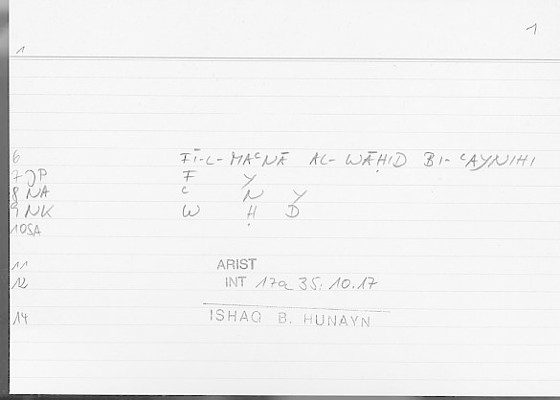 1
1
6 FĪ-L-MAʿNĀ AL-WĀḤID BI-ʿAYNIHI
7 JP F Y
8 NA ʿ N Y
9 NK W Ḥ D
10 SA
11 ARIST
12 INT 17a 35: 10.17
14 ISHAQ B. HUNAYN